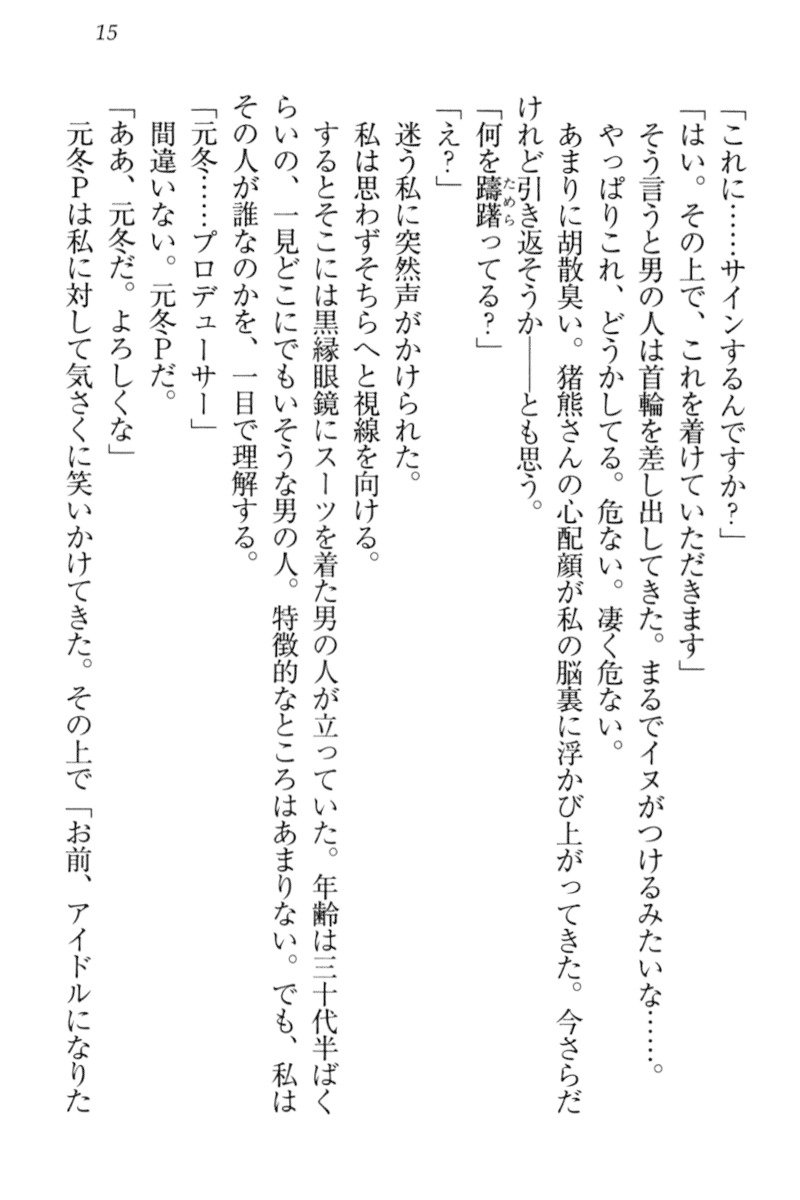 15
「これに……サインするんですか？」
「はい。その上で、これを着けていただきます」
そう言うと男の人は首輪を差し出してきた。まるでイヌがつけるみたいな……。
やっぱりこれ、どうかしてる。危ない。凄く危ない。
あまりに胡散臭い。猪熊さんの心配顔が私の脳裏に浮かび上がってきた。今さらだ
けれど引き返そうか――とも思う。
「何を躊躇ってる？」
ためら
「え？」
迷う私に突然声がかけられた。
私は思わずそちらへと視線を向ける。
するとそこには黒縁眼鏡にスーツを着た男の人が立っていた。年齢は三十代半ばく
らいの、一見どこにでもいそうな男の人。特徴的なところはあまりない。でも、私は
その人が誰なのかを、一目で理解する。
「元冬……プロデューサー」
間違いない。元冬Ｐだ。
「ああ、元冬だ。よろしくな」
元冬Ｐは私に対して気さくに笑いかけてきた。その上で「お前、アイドルになりた